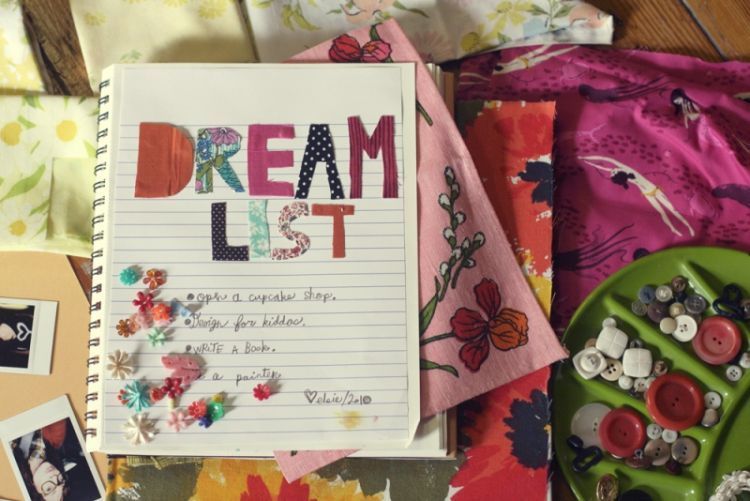 DREAM
LIST
• open a cupcake shop.
• Design for kiddos.
• WRITE A Book.
a painter
♡ elsie/2010